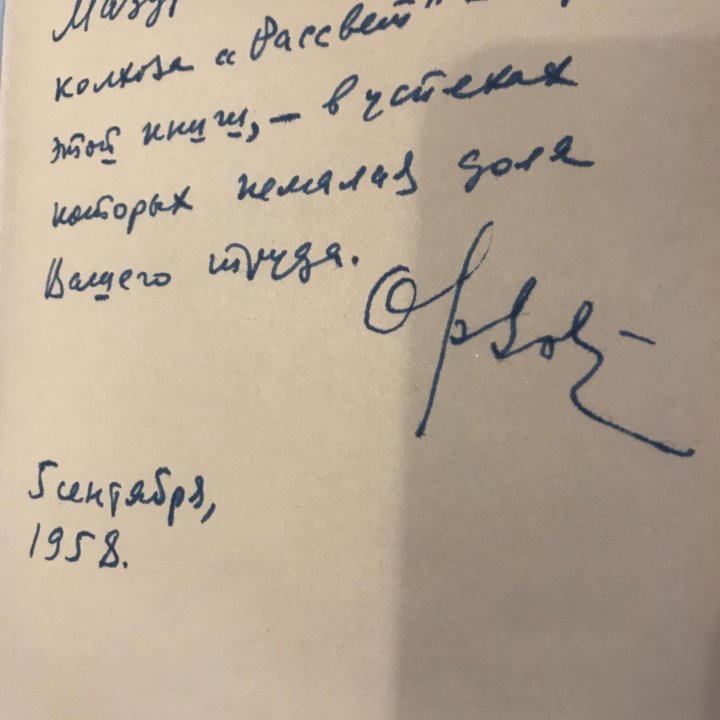 колхоза «Рассвет»
этой книги, – в успехах
которых немалая доля
Вашего труда.
5 сентября,
1958.